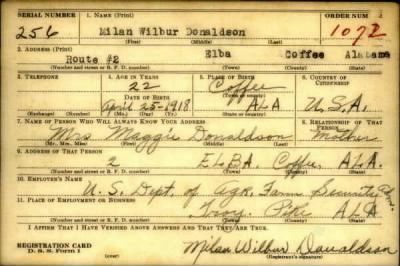 SERIAL NUMBER 1. NAME (Print) ORDER NUM
256 Milan Wilbur Donaldson 1072
(First) (Middle) (Last)
2. ADDRESS (Print)
Route #2 Elba Coffee Alabama
(Number and street or R. F. D. number) (Town) (County) (State)
3. TELEPHONE 4. AGE IN YEARS 5. PLACE OF BIRTH 6. COUNTRY OF CITIZENSHIP
22 Coffee
DATE OF BIRTH (Town or county)
April 25-1918 ALA U.S.A.
(Exchange) (Number) (Mo.) (Day) (Yr.) (State or country)
7. NAME OF PERSON WHO WILL ALWAYS KNOW YOUR ADDRESS 8. RELATIONSHIP OF THAT PERSON
Mrs Maggie Donaldson Mother
(Mr., Mrs., Miss) (First) (Middle) (Last)
9. ADDRESS OF THAT PERSON
2 ELBA, Coffee, ALA.
(Number and street or R. F. D. number) (Town) (County) (State)
10. EMPLOYER'S NAME
U. S. Dept. of Agr. Farm Security Adm.
11. PLACE OF EMPLOYMENT OR BUSINESS
Troy, Pike ALA
(Number and street or R. F. D. number) (Town) (County) (State)
I AFFIRM THAT I HAVE VERIFIED ABOVE ANSWERS AND THAT THEY ARE TRUE.
REGISTRATION CARD
D. S. S. Form 1 Milan Wilbur Donaldson
(Registrant's signature)